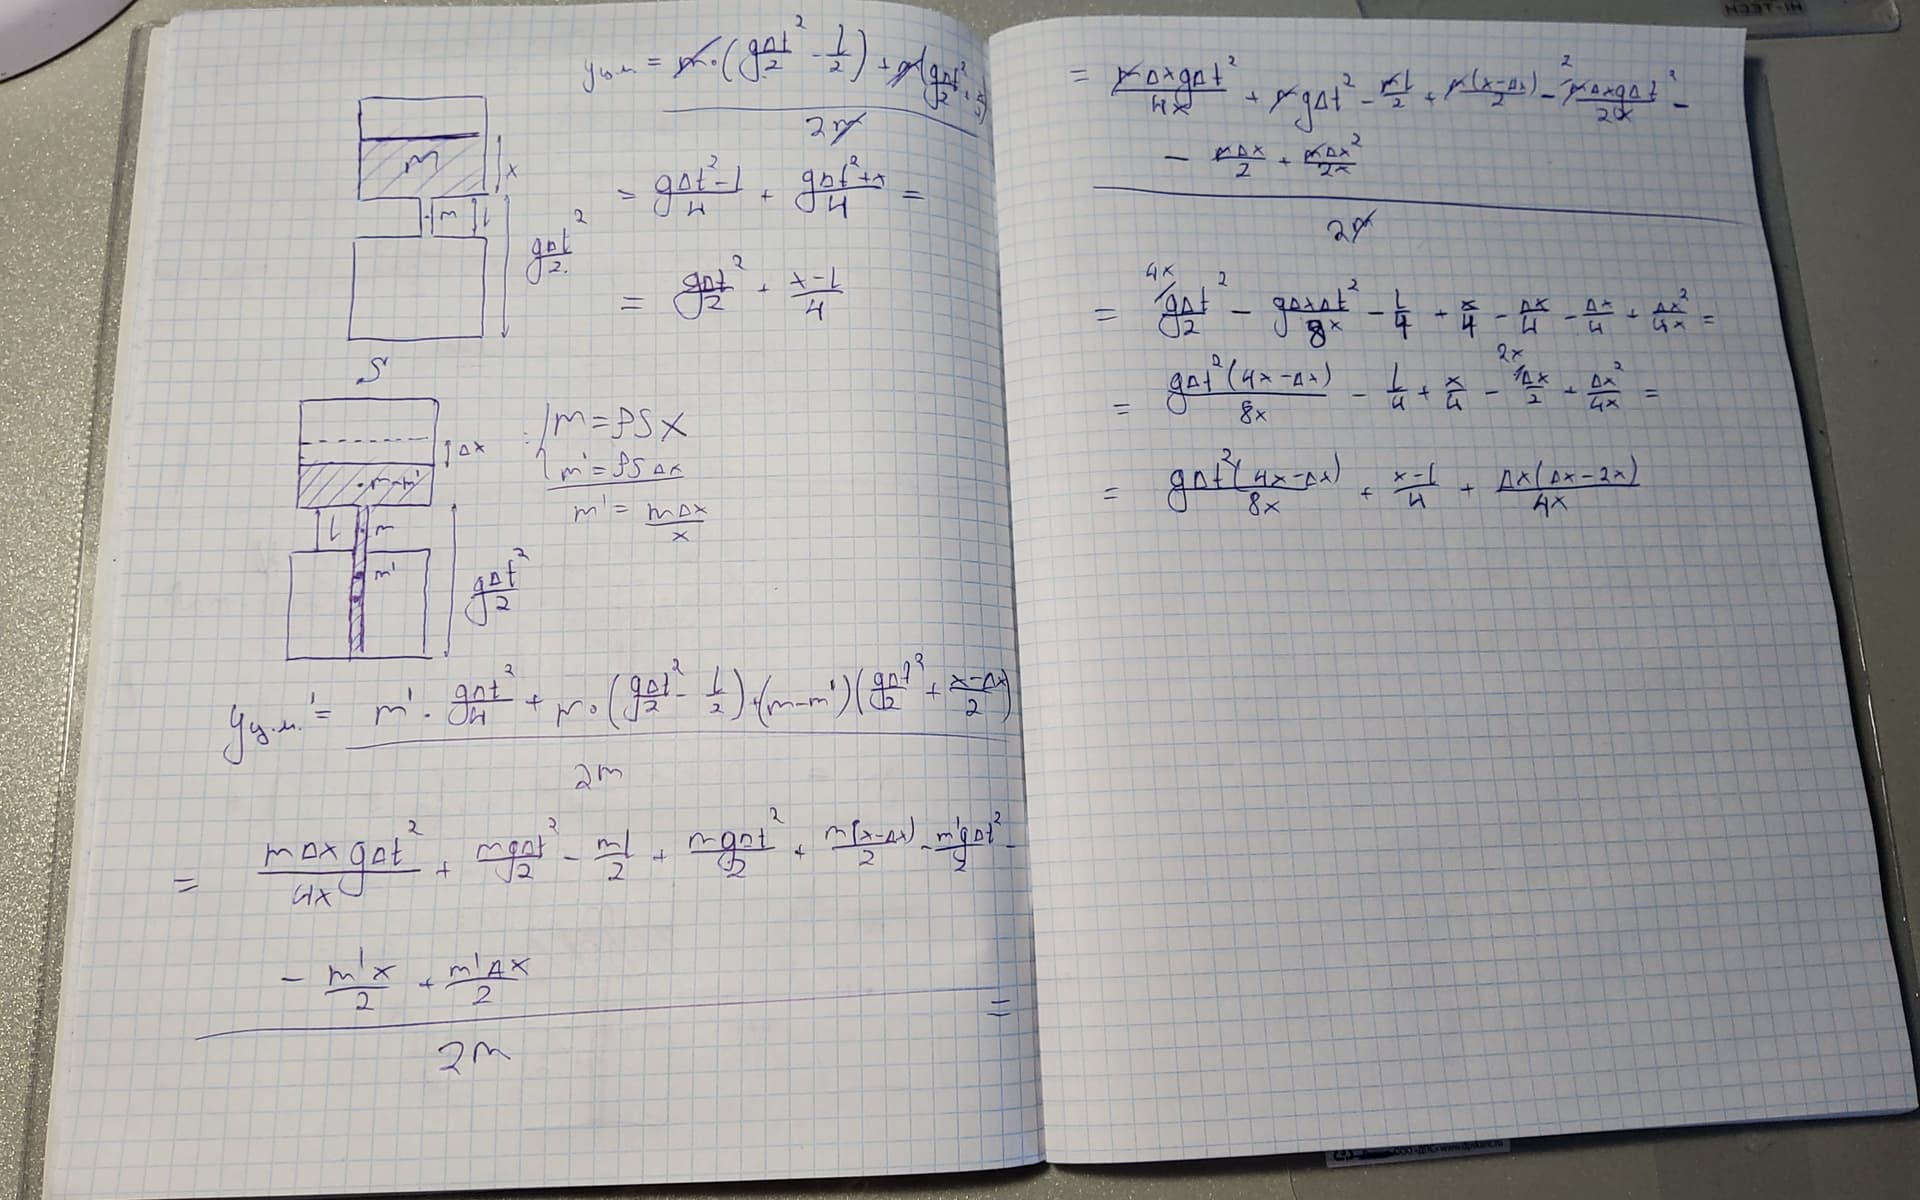 yц.м = m·(gΔt²/2 - l/2) + m(gΔt²/2 + x/2) / 2m
= gΔt²-l/4 + gΔt²+x/4 =
= gΔt²/2 + x-l/4
m
x
m l
gΔt²/2
S
Δx
m-m'
l m
m'
gΔt²/2
m = ρSx
m' = ρSΔx
m' = mΔx/x
yц.м.' = m'·gΔt²/4 + m·(gΔt²/2 - l/2) + (m-m')(gΔt²/2 + x-Δx/2) / 2m
= mΔxgΔt²/4x + mgΔt²/2 - ml/2 + mgΔt²/2 + m(x-Δx)/2 - m'gΔt²/2 -
- m'x/2 + m'Δx/2 =
2m
= mΔxgΔt²/4x + mgΔt² - ml/2 + m(x-Δx)/2 - mΔxgΔt²/2x -
- mΔx/2 + mΔx²/2x
2m
= gΔt²/2 - gΔxΔt²/8x - l/4 + x/4 - Δx/4 - Δx/4 + Δx²/4x =
= gΔt²(4x-Δx)/8x - l/4 + x/4 - Δx/2 + Δx²/4x =
= gΔt²(4x-Δx)/8x + x-l/4 + Δx(Δx-2x)/4x
HI-TECH